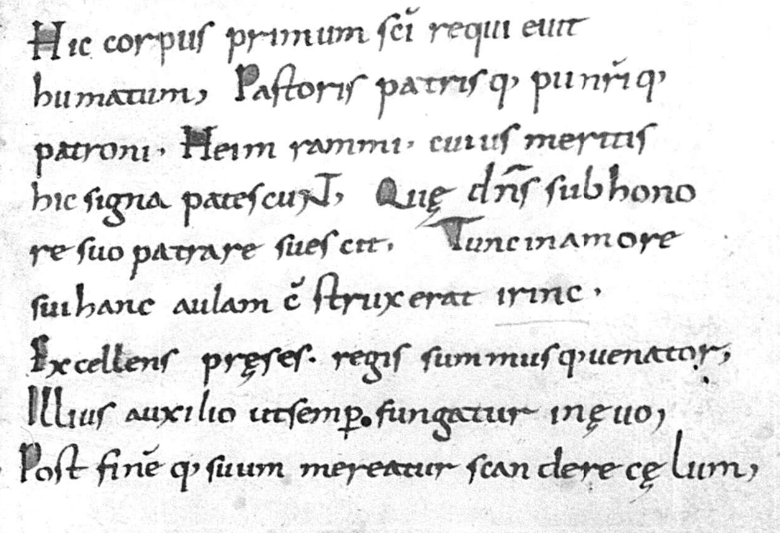 Hic corpus primum scī requi euit
humatum, Pastoris patrisq, pu nr̄iq,
patroni. Heim rammi. cuius meritis
hic signa patescunt, Quę dn̄s sub hono
re suo patrare suescit. Tunc in amore
sui hanc aulam c̄ struxerat irinc.
Excellens pręses. regis summusq, uenator,
Illius auxilio ut semp̲. fungatur in ęuo,
Post finē q, suum mereatur scandere cęlum,